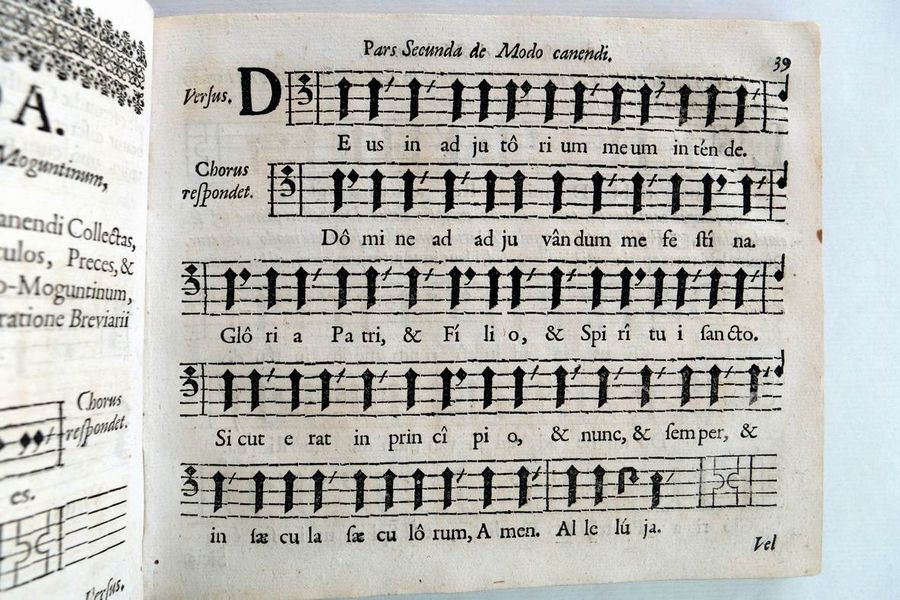 A.
Moguntinum,
anendi Collectas,
culos, Preces, &
o-Moguntinum,
ratione Breviarii
Chorus
respondet.
es.
Versus.
Pars Secunda de Modo canendi.
39
Versus.
DEus in adjutôrium meum inténde.
Chorus
respondet.
Dômine ad adjuvândum me festîna.
Glôria Patri, & Fílio, & Spirîtui sancto.
Sicut erat in princîpio, & nunc, & semper, &
in sæcula sæculôrum, Amen. Allelúja.
Vel